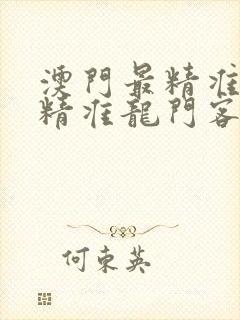 澳門最精准
精准龍門客
何東英